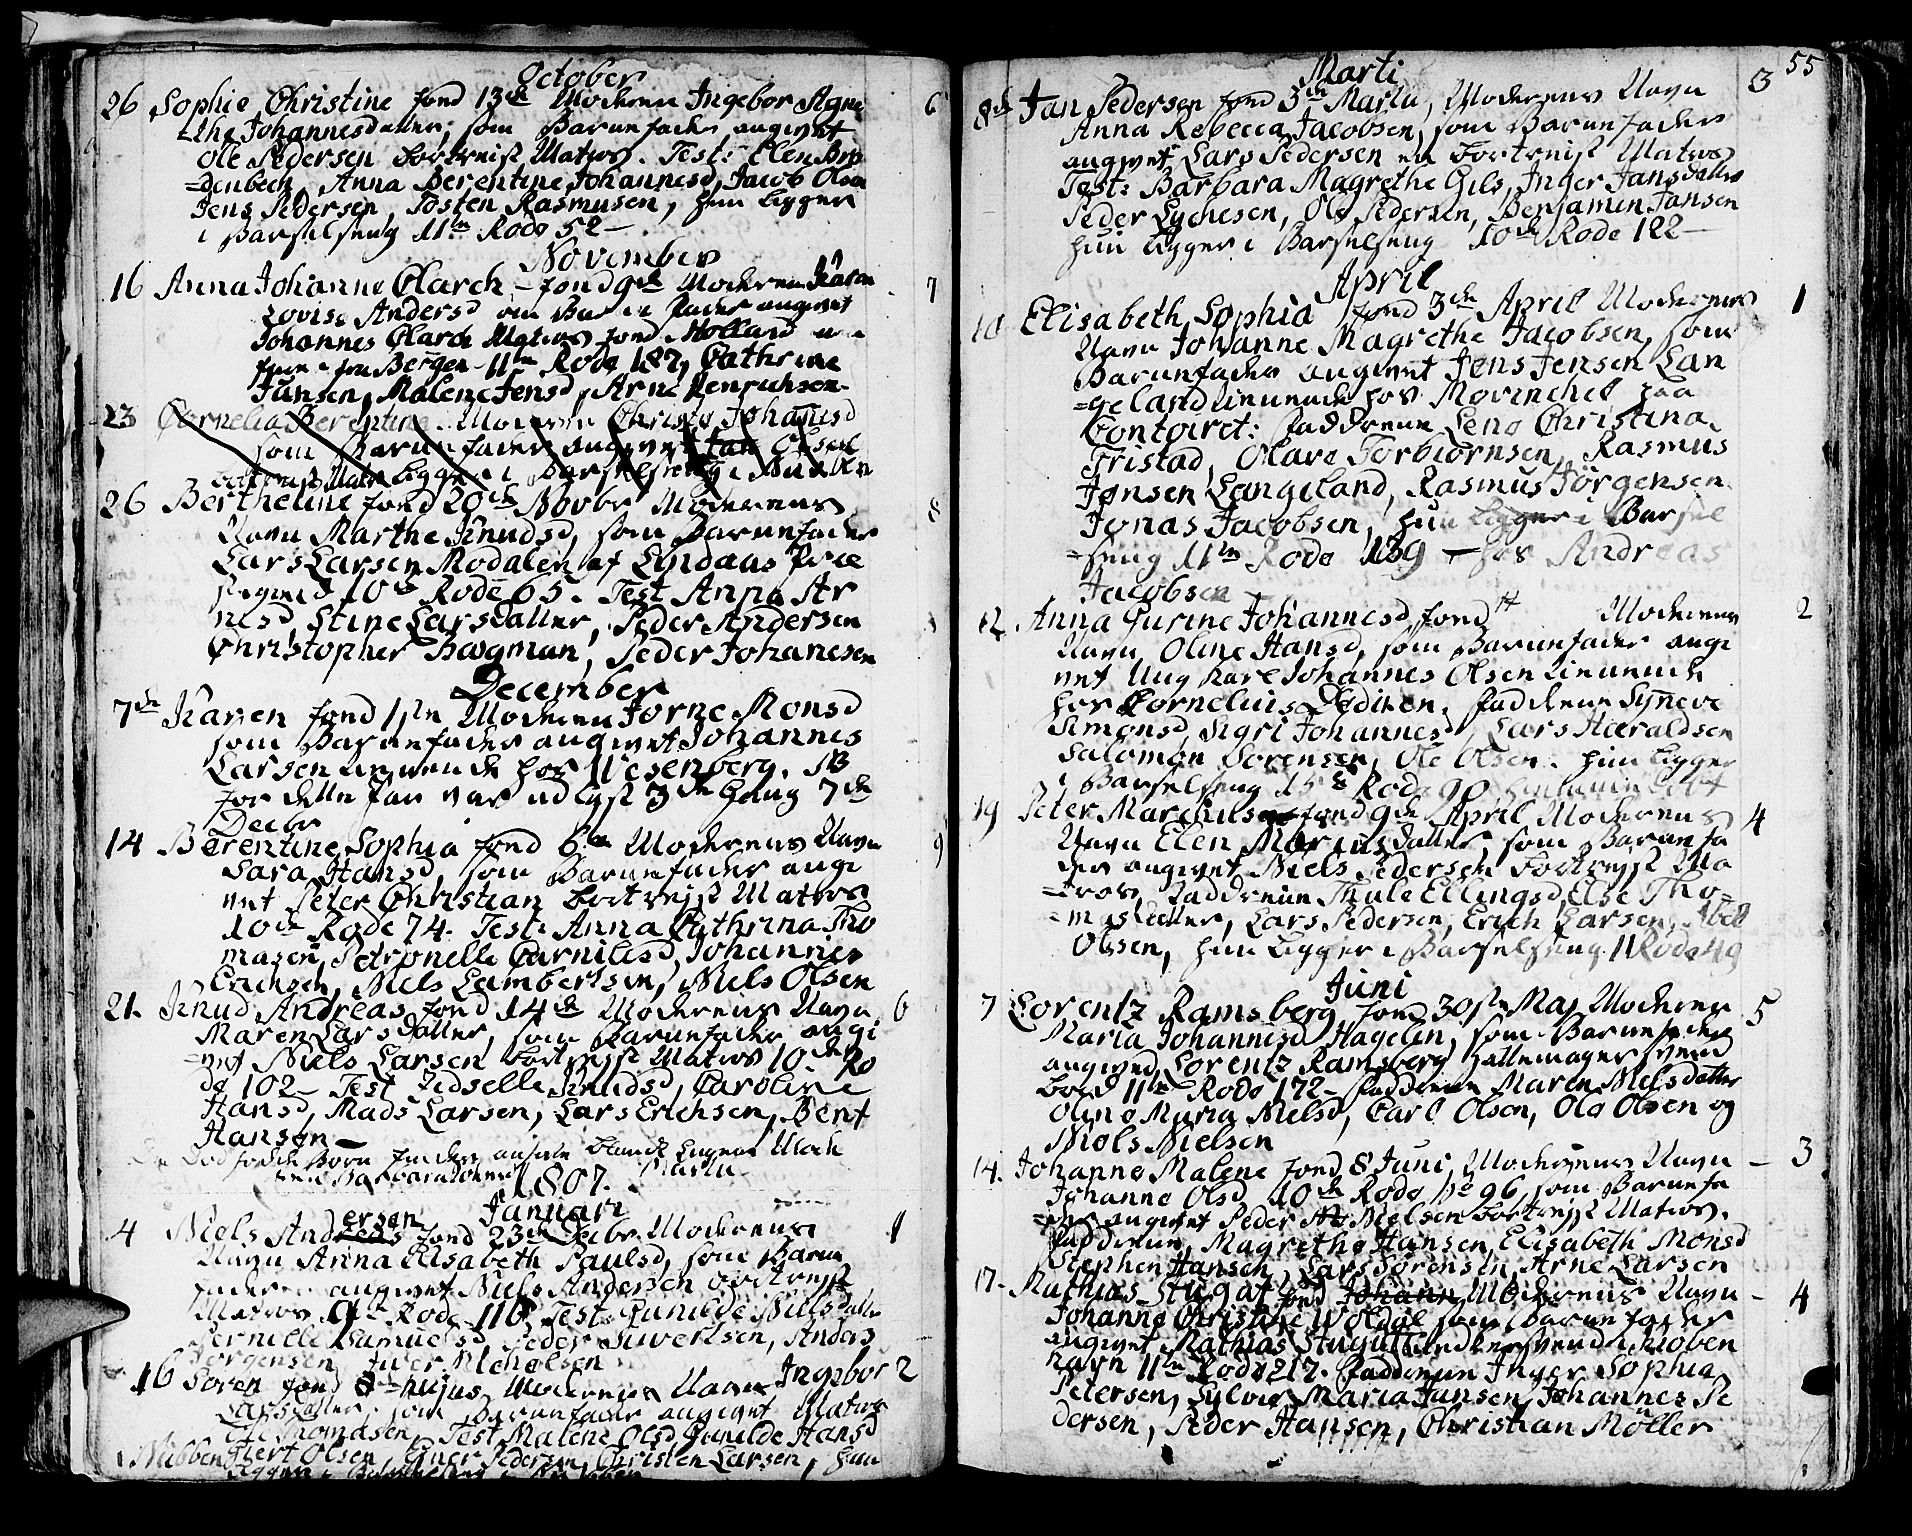 October
26 Sophie Christine fød 13de Moderen Ingebor Agne
the Johannesdatter, som Barnefader angivet
Ole Pedersen bortreist Matros. Test: Elen Bre
=denbech, Anna Berentine Johannesd, Jacob Olsen
Jens Pedersen, Tosten Rasmusen, hun ligger
i Barselseng 11te Rode 52 — 6
November
16 Anna Johanne Clarch – fød 9de Moderen Karen
Lovise Andersd om Barne Fader angivet
Johannes Clarch Matros fød i Holland
fra Bergen – 11te Rode 187, Cathrine
Jansen, Malene Jensd, Arne Henrichsen 7
23 Cornelia Berentine Moderen Christi Johannsd
som Barnefader angivet Jan Olsen
bortreist Matr ligger i Barselseng i
26 Bertheline fød 20de Novbr Moderens
Navn Marthe Knudsd, som Barnefader
Lars Larsen Modalen af Lyndaas Præ
stegield 10de Rode 65. Test Anna Ar
nesd Stine Larsdatter, Peder Andersen
Christopher Hagman, Peder Johanesen 8
December
7de Karen fød 1ste Moderen Jorne Monsd
som Barnefader angivet Johannes
Larsen tienende hos Wesenberg. NB
for dette Par var udlyst 3de Gang 7de
Decbr
14 Berentine Sophia fød 6te Moderens Navn
Sara Hansd, som Barnefader angi
vet Peter Christian bortrejst Matros
10de Rode 74. Test: Anna Cathrina Tho
masen, Petronelle Cornilisd, Johannes
Erichsen, Niels Lambertsen, Niels Olsen 9
21. Knud Andreas fød 14de Moderens Navn
Maren Larsdatter, som Barnefader angi
=vet Niels Larsen bortrejst Matros 10de Ro
de 102 – Test Zidselle Knudsd, Caroline
Hansd, Mads Larsen, Lars Erichsen, Bent
Hansen — 6
Død fødde Børn findes anførte blandt
1807.
Januari
4 Niels Andersen fød 23de Decbr Moderens
Navn Anna Elisabeth Paulsd, som Barne
fader angivet Niels Andersen bortrejst
Matros 9de Rode 118, Test: Gunilde Nielsdatter
Pernille Samuelsd Peder Sivertsen, Andas
Jørgensen Iver Nicholsen 1
16 Søren fød 8de hujus Moderens Navn Ingebor
Larsdatter, som Barnefader angivet Matros
Ole Thomasen, Test Malene Olsd Gunilde Hansd
Giert Olsen Einer Pedersen, Christen Larsen, hun
ligger i Barselseng i Nubben 2
55
Marti
8de Jan Pedersen fød 5de Martii, Moderens Navn
Anna Rebecca Jacobsen, som Barnefader
angivet Lars Pedersen en bortreist Matros
Test: Barbara Magrethe Gils, Inger Jansdatter
Peder Lychesen, Ole Pedersen, Benjamin Jansen
hun ligger i Barselseng 10de Rode 122 — 3
April
10 Elisabeth Sophia fød 3de April Moderens
Navn Johanne Magrethe Jacobsen, som
Barnefader angivet Jens Jensen Lan
=geland tienende hos Movinchel paa
Contoiret: Faddrene Lene Christina
Tristad, Olave Torbiørnsen, Rasmus
Jønsen Langeland, Rasmus Jörgensen
Jonas Jacobsen, hun ligger i Barsel
=seng 11te Rode 139 — hos Andreas
Jacobsen 1
12 Anna Gurine Johannesd fød Moderens
Navn Oline Hansd, som Barnefader angi
vet Ung Karl Johannes Olsen tienende
hos Cornelius Didiken, Faddrene Synneve
Simonsd, Sigri Johannesd, Lars Haraldsen
Salomon Sørensen, Ole Olsen. hun ligger
i Barselseng 15de Rode 90 2
19 Peter Marchus fød 9de April Moderens
Navn Elen Moriusdatter, som Barnefa
der angivet Niels Pedersen bortrejst Ma
=tros, Faddrene Thule Ellingsd, Else Tho-
=masdatter, Lars Pedersen, Erich Larsen, Abel
Olsen, hun ligger i Barselseng 11 Rode 49 4
Juni
7 Lorentz Ramsberg fød 30ste Maj Moderen
Maria Johannesd Hagelin, som Barnefader
angived Lorentz Ramsberg Hattemager svend
boed 11te Rode 172 – Faddrene Maren Nielsdatter
Oline Maria Nielsd, Carl Olsen, Ole Olsen og
Niols Nielsen 5
14. Johanne Malene fød 8 Juni, Moderens Navn
Johanne Olsd 10de Rode No 96, som Barnefa
=der angivet Peder Nielsen bortrejst Matros.
Faddrene, Magrethe Hansen, Elisabeth Monsd
Stephen Hansen, Lars Sørensen, Arne Larsen 3
17. Mathias Stugat fød Johann Moderens Navn
Johanne Christine Woldal som Barnefader
angivet Mathias Stugat Snedkersvend i Kioben
havn 11te Rode 217. Faddrene Inger Sophia
Petersen, Sylvie Maria Jansen, Johannes Pe
dersen, Peder Hansen, Christian Möller 4